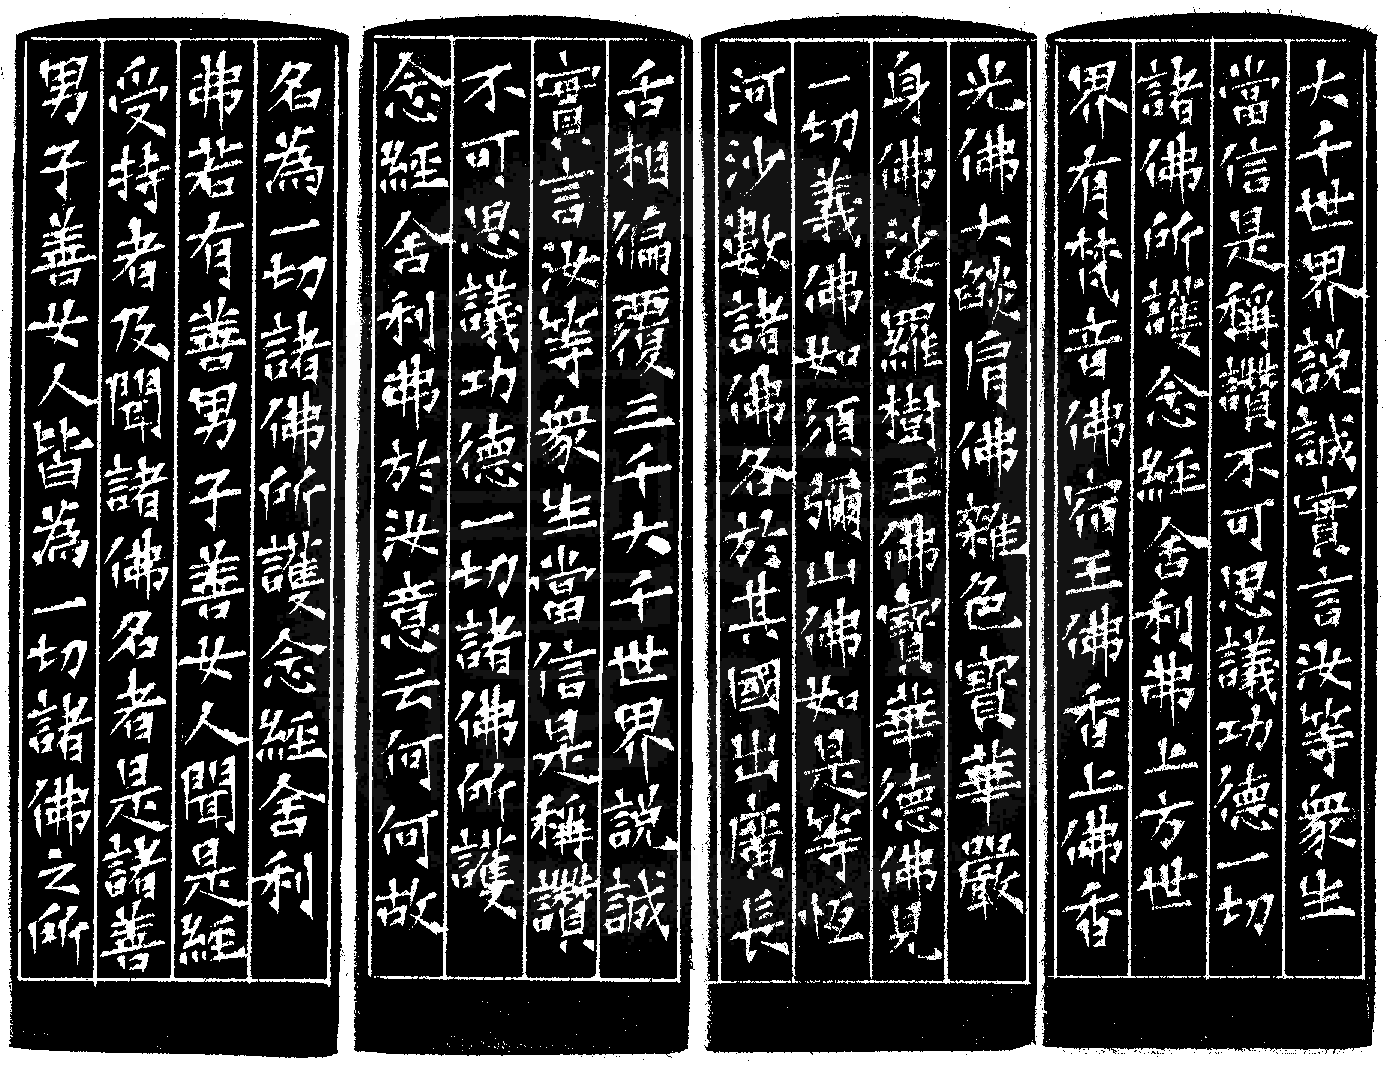 大千世界說誠實言汝等衆生
當信是稱讚不可思議功德一切
諸佛所護念經舍利弗上方世
界有梵音佛宿王佛香上佛香
光佛大燄肩佛雜色寶華嚴
身佛娑羅樹王佛寶華德佛見
一切義佛如須彌山佛如是等恆
河沙數諸佛各於其國出廣長
舌相徧覆三千大千世界說誠
實言汝等衆生當信是稱讚
不可思議功德一切諸佛所護
念經舍利弗於汝意云何何故
名為一切諸佛所護念經舍利
弗若有善男子善女人聞是經
受持者及聞諸佛名者是諸善
男子善女人皆為一切諸佛之所